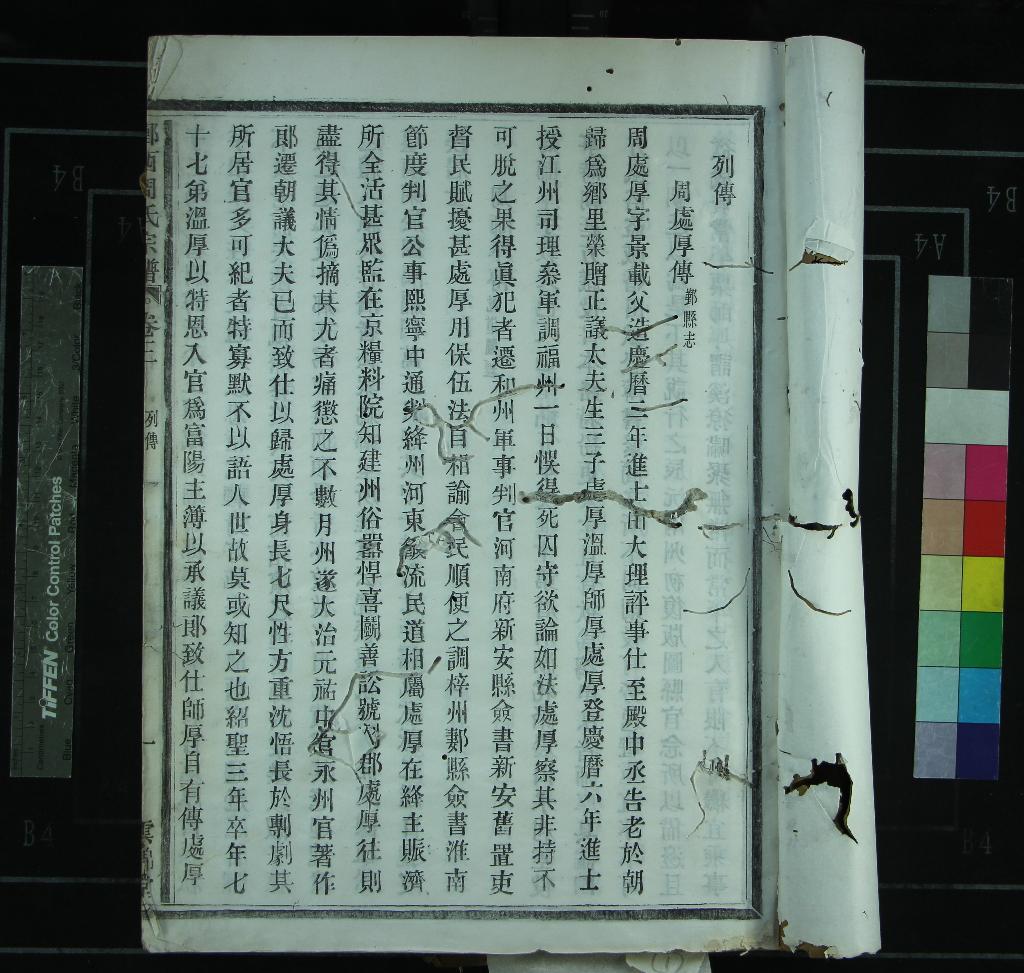 列傳
周處厚傳 鄞縣志
周處厚字景載父造慶曆三年進士由大理評事仕至殿中丞告老於朝
歸爲鄉里榮贈正議大夫生三子處厚溫厚師厚處厚登慶曆六年進士
授江州司理叅軍調福州一日悞得死囚守欲論如法處厚察其非持不
可脫之果得眞犯者遷和州軍事判官河南府新安縣僉書新安舊置吏
督民賦擾甚處厚用保伍法自相諭會民順便之調梓州郪縣僉書淮南
節度判官公事熙寧中通判絳州河東饑流民道相屬處厚在絳主賑濟
所全活甚眾監在京糧料院知建州俗嚚悍喜鬭善訟號難郡處厚往則
盡得其情僞摘其尤者痛懲之不數月州遂大治元祐中官永州官著作
郎遷朝議大夫已而致仕以歸處厚身長七尺性方重沈悟長於剸劇其
所居官多可紀者特寡默不以語人世故莫或知之也紹聖三年卒年七
十七第溫厚以特恩入官爲富陽主簿以承議郎致仕師厚自有傳處厚
周氏宗譜 卷二 列傳 一
B4
A4
B4
A4
B4
B4
TIFFEN Color Control Patches